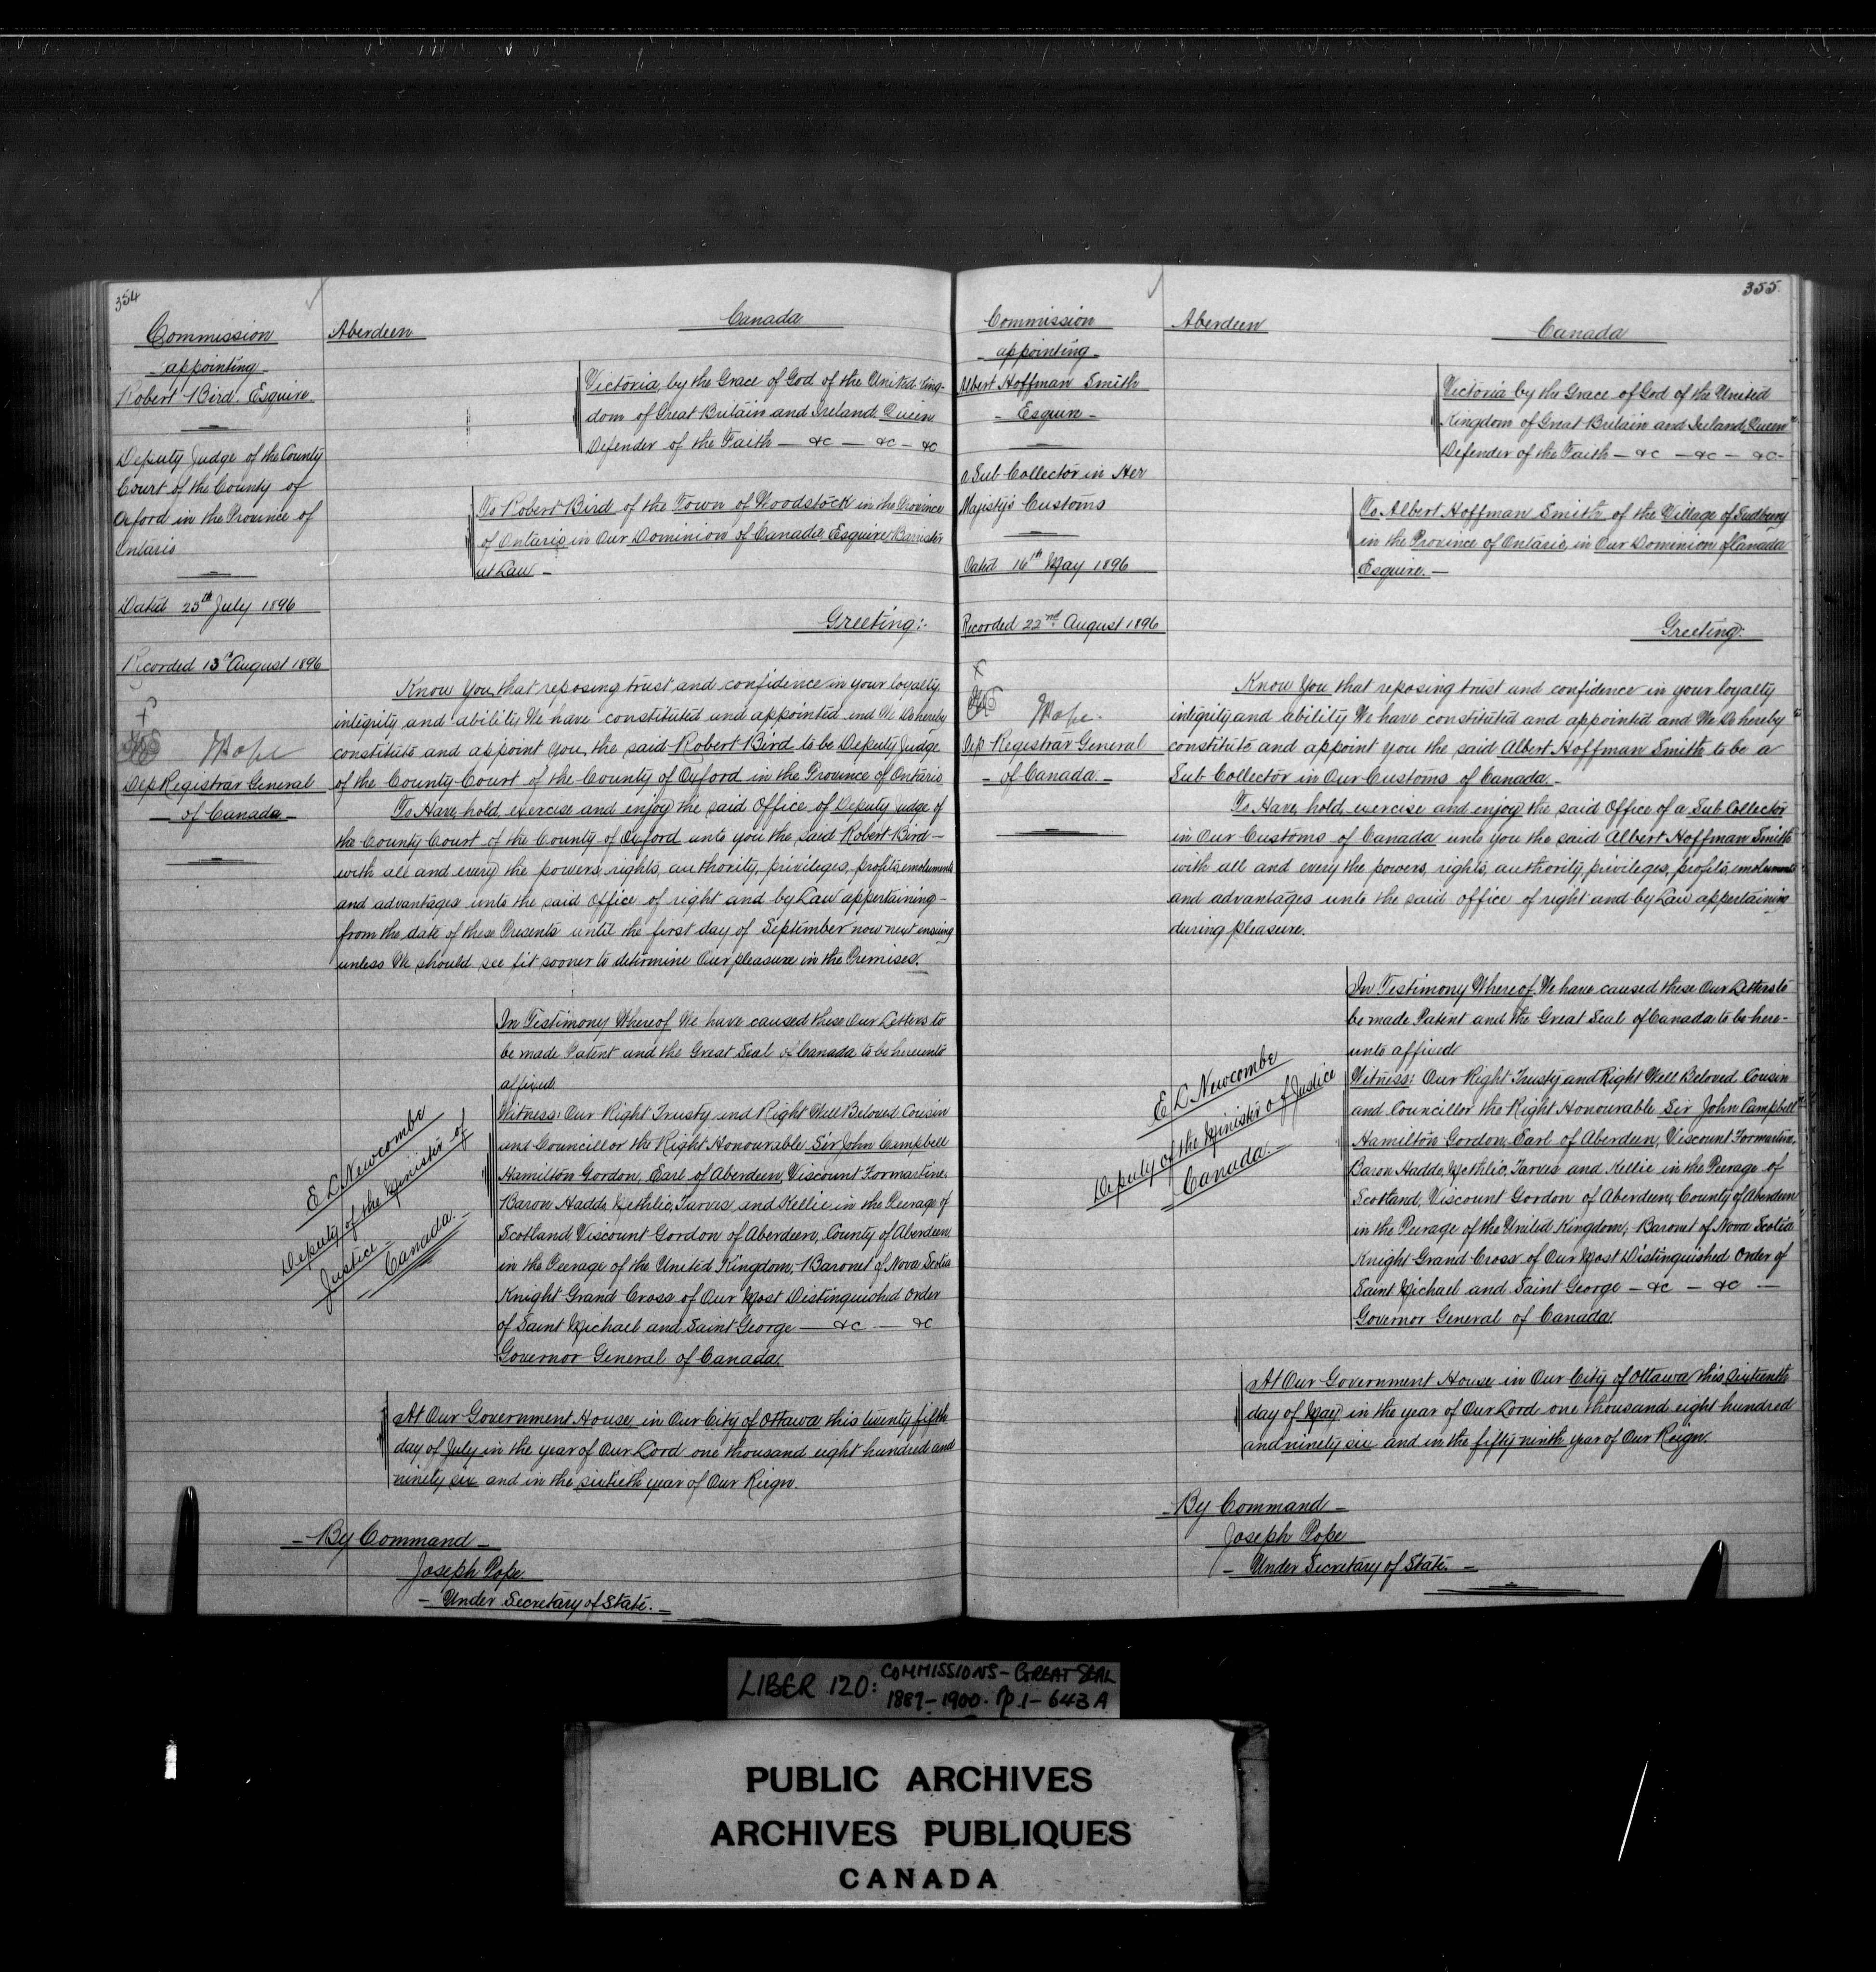 354
Commission
appointing
Robert Bird. Esquire.
Deputy Judge of the County
Court of the County of
Oxford in the Province of
Ontario
Dated 25th July 1896
Recorded 13th August 1896
Pope
Dep Registrar General
of Canada
Aberdeen
Canada
Victoria, by the Grace of God of the United King-
dom of Great Britain and Ireland, Queen
Defender of the Faith — &c — &c — &c
To Robert Bird of the Town of Woodstock in the Province
of Ontario in Our Dominion of Canada, Esquire, Barrister
at Law —
Greeting:-
Know You, that reposing trust and confidence in your loyalty
integrity and ability We have constituted and appointed and We Do hereby
constitute and appoint you, the said Robert Bird to be Deputy Judge
of the County Court of the County of Oxford in the Province of Ontario
To Have, hold, exercise and enjoy the said Office of Deputy Judge of
the County Court of the County of Oxford unto you the said Robert Bird —
with all and every the powers, rights, authority, privileges, profits, emoluments
and advantages unto the said Office of right and by Law appertaining -
from the date of these Presents until the first day of September now next ensuing
unless We should see fit sooner to determine Our pleasure in the Premises.
In Testimony Whereof We have caused these Our Letters to
be made Patent and the Great Seal of Canada to be hereunto
affixed.
Witness: Our Right Trusty and Right Well Beloved Cousin
and Councillor the Right Honourable Sir John Campbell
Hamilton Gordon, Earl of Aberdeen, Viscount Formartine,
Baron Haddo, Methlic, Tarves and Kellie in the Peerage of
Scotland Viscount Gordon of Aberdeen, County of Aberdeen,
in the Peerage of the United Kingdom, Baronet of Nova Scotia
Knight Grand Cross of Our Most Distinguished Order
of Saint Michael and Saint George — &c — &c
Governor General of Canada.
E L Newcombe
Deputy of the Minister of
Justice
Canada.
At Our Government House in Our City of Ottawa this twenty fifth
day of July in the year of Our Lord one thousand eight hundred and
ninety six and in the sixtieth year of Our Reign.
By Command
Joseph Pope.
Under Secretary of State.
355
Commission
appointing
Albert Hoffman Smith
Esquire
a Sub Collector in Her
Majesty's Customs
Dated 16th May 1896
Recorded 22nd August 1896
Pope.
Dep Registrar General
of Canada.
Aberdeen
Canada
Victoria by the Grace of God of the United
Kingdom of Great Britain and Ireland, Queen
Defender of the Faith — &c — &c — &c-
To Albert Hoffman Smith of the Village of Sudbury
in the Province of Ontario, in Our Dominion of Canada
Esquire. —
Greeting:
Know You that reposing trust and confidence in your loyalty
integrity and ability We have constituted and appointed and We Do hereby
constitute and appoint you the said Albert Hoffman Smith to be a
Sub Collector in Our Customs of Canada.
To Have, hold, exercise and enjoy the said Office of a Sub Collector
in Our Customs of Canada unto you the said Albert Hoffman Smith
with all and every the powers, rights, authority, privileges, profits, emoluments
and advantages unto the said office of right and by Law appertaining
during pleasure.
In Testimony Whereof We have caused these Our Letters to
be made Patent and the Great Seal of Canada to be here-
unto affixed
Witness: Our Right Trusty and Right Well Beloved Cousin
and Councillor the Right Honourable Sir John Campbell
Hamilton Gordon, Earl of Aberdeen, Viscount Formartine,
Baron Haddo, Methlic, Tarves and Kellie in the Peerage of
Scotland, Viscount Gordon of Aberdeen, County of Aberdeen
in the Peerage of the United Kingdom, Baronet of Nova Scotia
Knight Grand Cross of Our Most Distinguished Order of
Saint Michael and Saint George — &c — &c —
Governor General of Canada.
E L Newcombe
Deputy of the Minister of Justice
Canada.
At Our Government House in Our City of Ottawa this sixteenth
day of May in the year of Our Lord one thousand eight hundred
and ninety six and in the fifty ninth year of Our Reign.
By Command
Joseph Pope
Under Secretary of State.
LIBER 120: COMMISSIONS - GREAT SEAL
1887-1900. Pp. 1-643A
PUBLIC ARCHIVES
ARCHIVES PUBLIQUES
CANADA